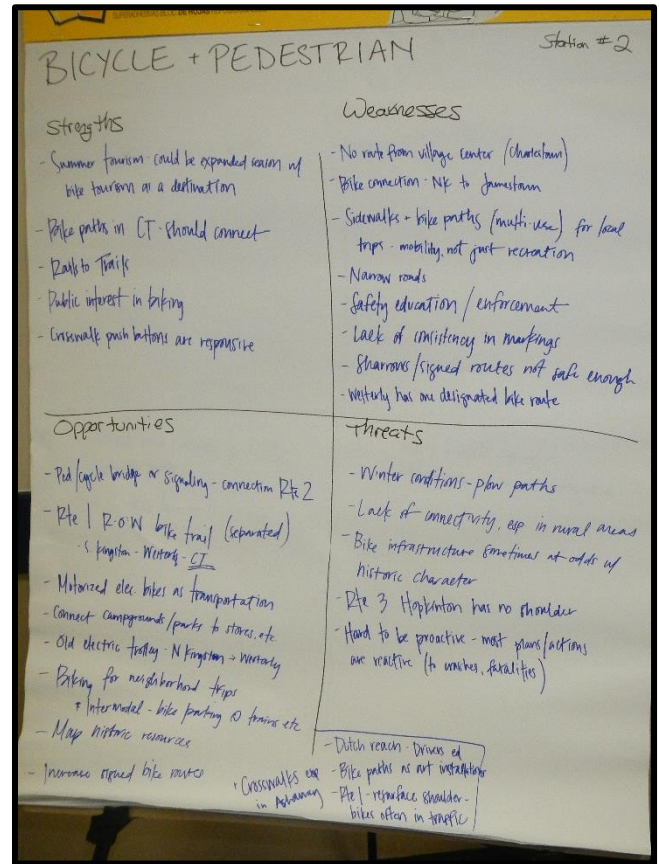 BICYCLE + PEDESTRIAN
Station #2
Strengths
- Summer tourism - could be expanded season w/
bike tourism as a destination
- Bike paths in CT - should connect
- Rails to Trails
- Public interest in biking
- Crosswalk push buttons are responsive
Weaknesses
- No route from village center (Charlestown)
- Bike connection - NK to Jamestown
- Sidewalks + bike paths (multi-use) for local
trips - mobility, not just recreation
- Narrow roads
- Safety education / enforcement
- Lack of consistency in markings
- Sharrows/signed routes not safe enough
- Westerly has one designated bike route
Opportunities
- Ped/cycle bridge or signaling - connection Rte 2
- Rte 1 R.O.W bike trail (separated)
- S. Kingston - Westerly - CT
- Motorized elec. bikes as transportation
- Connect campgrounds/parks to stores, etc
- Old electric trolley - N Kingston → Westerly
- Biking for neighborhood trips
* Intermodal - bike parking @ trains etc
- Map historic resources
- Increase signed bike routes
* Crosswalks esp
in Ashaway
Threats
- Winter conditions - plow paths
- Lack of connectivity, esp in rural areas
- Bike infrastructure sometimes at odds w/
historic character
- Rte 3 Hopkinton has no shoulder
- Hard to be proactive - most plans/actions
are reactive (to crashes, fatalities)
- Dutch reach - Drivers ed
- Bike paths as art installations
- Rte 1 - repurpose shoulder -
bikes often in traffic